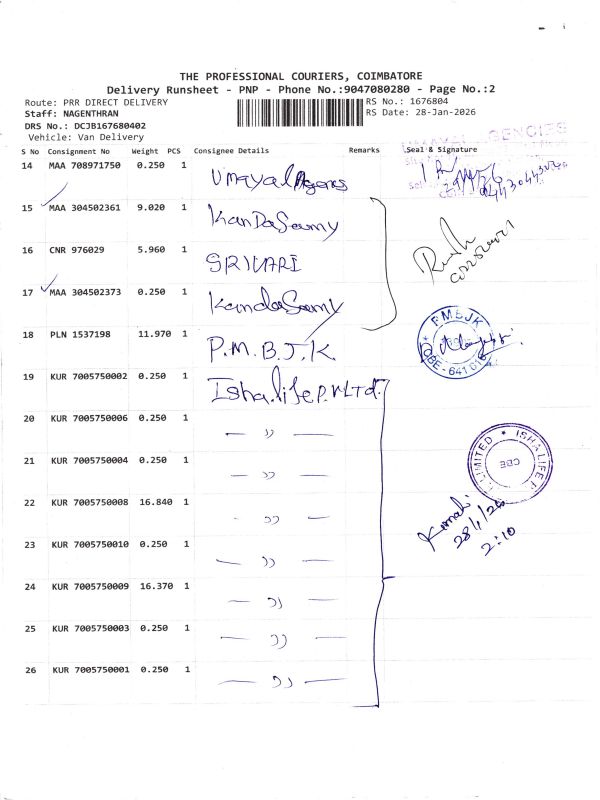 THE PROFESSIONAL COURIERS, COIMBATORE
Delivery Runsheet - PNP - Phone No.:9047080280 - Page No.:2
Route: PRR DIRECT DELIVERY
Staff: NAGENTHRAN
DRS No.: DCJB167680402
Vehicle: Van Delivery
RS No.: 1676804
RS Date: 28-Jan-2026
S No Consignment No Weight PCS Consignee Details Remarks Seal & Signature
14 MAA 708971750 0.250 1 Umayal Agens
15 MAA 304502361 9.020 1 KanDaSamy
16 CNR 976029 5.960 1 SRIHARI
17 MAA 304502373 0.250 1 KandaSamy
18 PLN 1537198 11.970 1 P.M.B.J.K.
PMBJK
CBE - 641
19 KUR 7005750002 0.250 1 Isha.life P.V Ltd.
20 KUR 7005750006 0.250 1 — " —
21 KUR 7005750004 0.250 1 — " —
LIMITED * ISHA LIFE P
CBE
22 KUR 7005750008 16.840 1 — " —
28/1/26
2:10
23 KUR 7005750010 0.250 1 — " —
24 KUR 7005750009 16.370 1 — " —
25 KUR 7005750003 0.250 1 — " —
26 KUR 7005750001 0.250 1 — " —